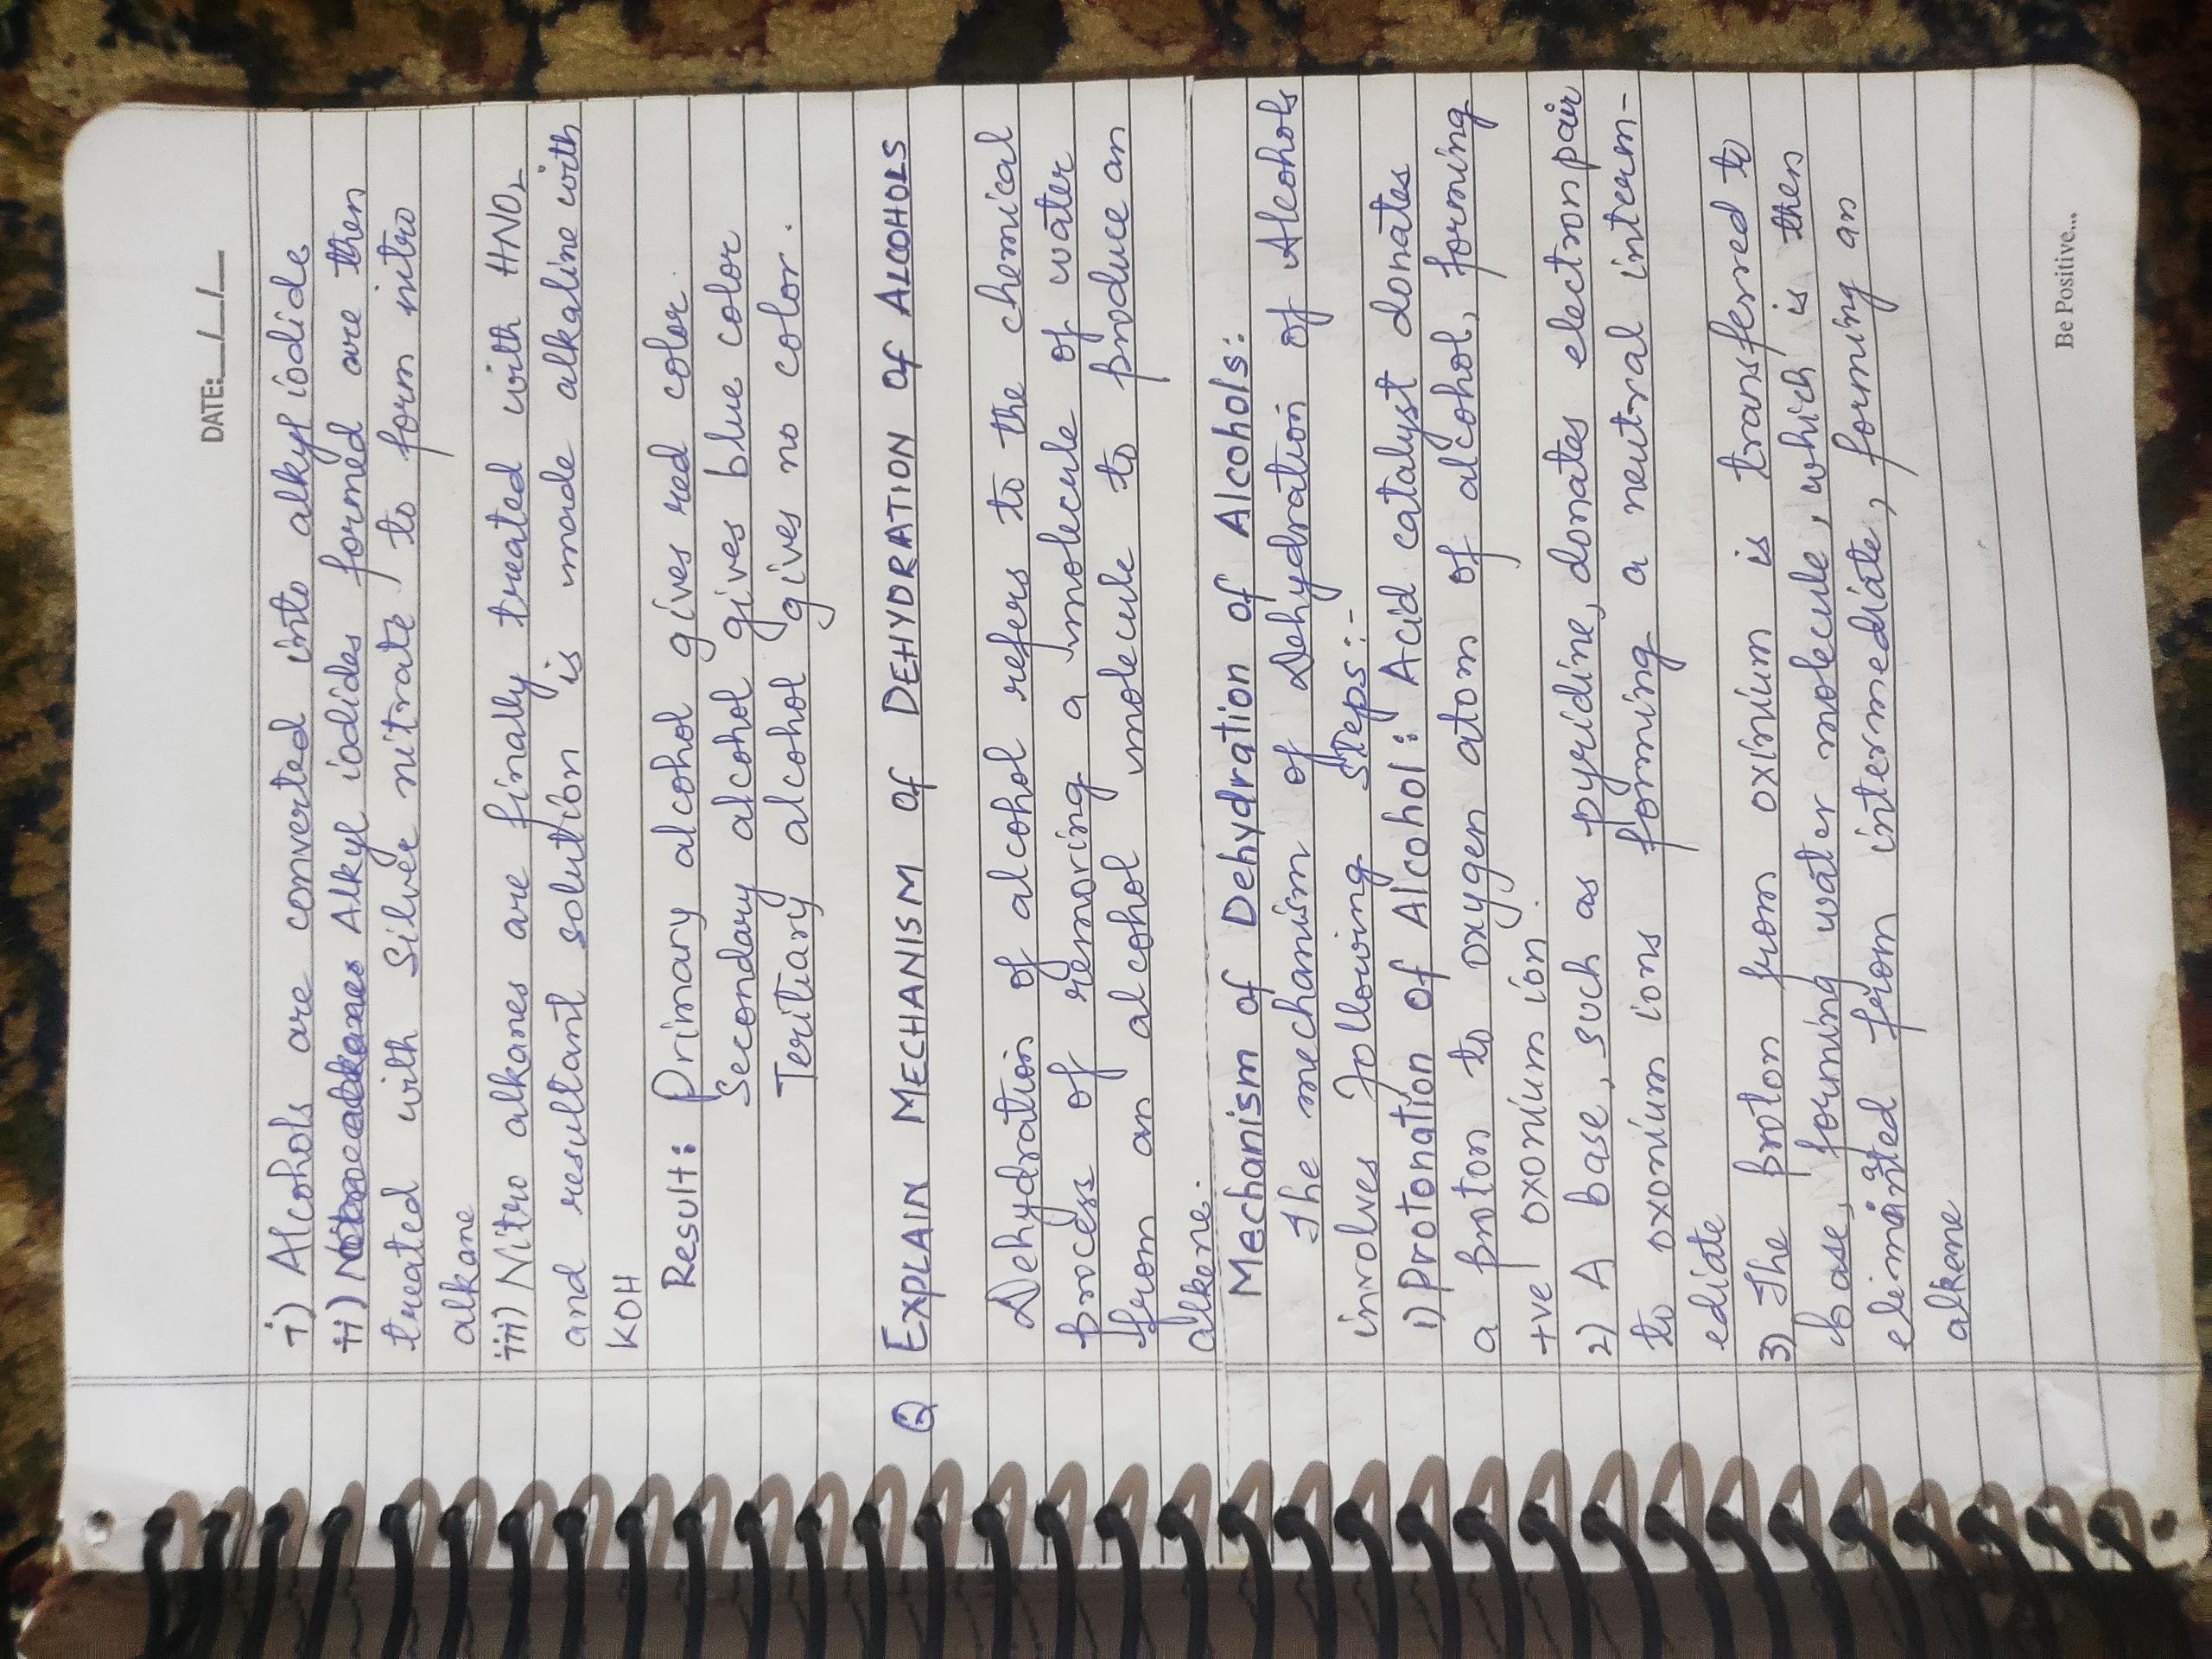 DATE:__/__/__
i) Alcohols are converted into alkyl iodide
ii) Alkyl iodides formed are then
treated with Silver nitrate to form nitro
alkane
iii) Nitro alkanes are finally treated with HNO2
and resultant solution is made alkaline with
KOH
Result: Primary alcohol gives red color.
Secondary alcohol gives blue color
Teritiary alcohol gives no color.
Q EXPLAIN MECHANISM Of DEHYDRATION Of ALCOHOLS
Dehydration of alcohol refers to the chemical
process of removing a molecule of water
from an alcohol molecule to produce an
alkene.
Mechanism of Dehydration of Alcohols:
The mechanism of Dehydration of Alcohols
involves following steps:-
1) Protonation of Alcohol: Acid catalyst donates
a proton to oxygen atom of alcohol, forming
+ve oxonium ion.
2) A base, such as pyridine, donates electron pair
to oxonium ions forming a neutral interm-
ediate
3) The proton from oximium is transferred to
base, forming water molecule, which is then
eliminated from intermediate, forming an
alkene
Be Positive...